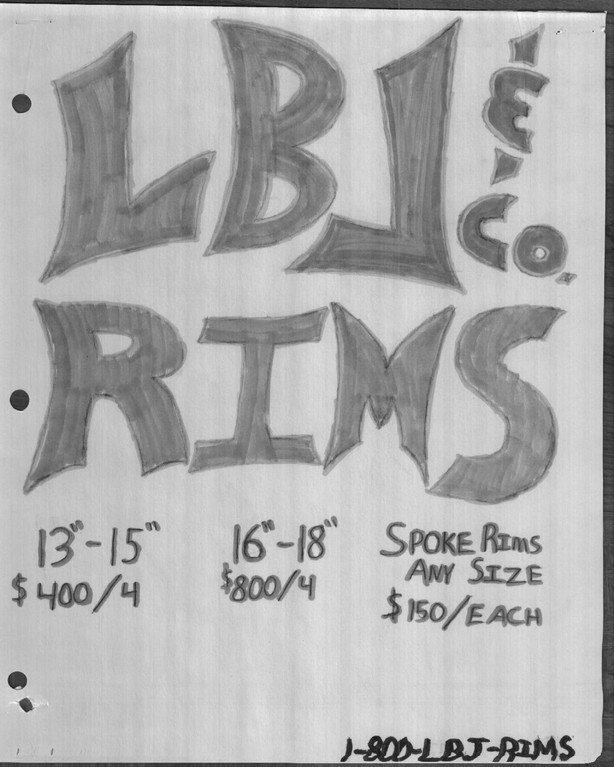 LBJ & Co.
RIMS
13"-15" 16"-18" SPOKE RIMS
$400/4 $800/4 ANY SIZE
$150/EACH
1-800-LBJ-RIMS